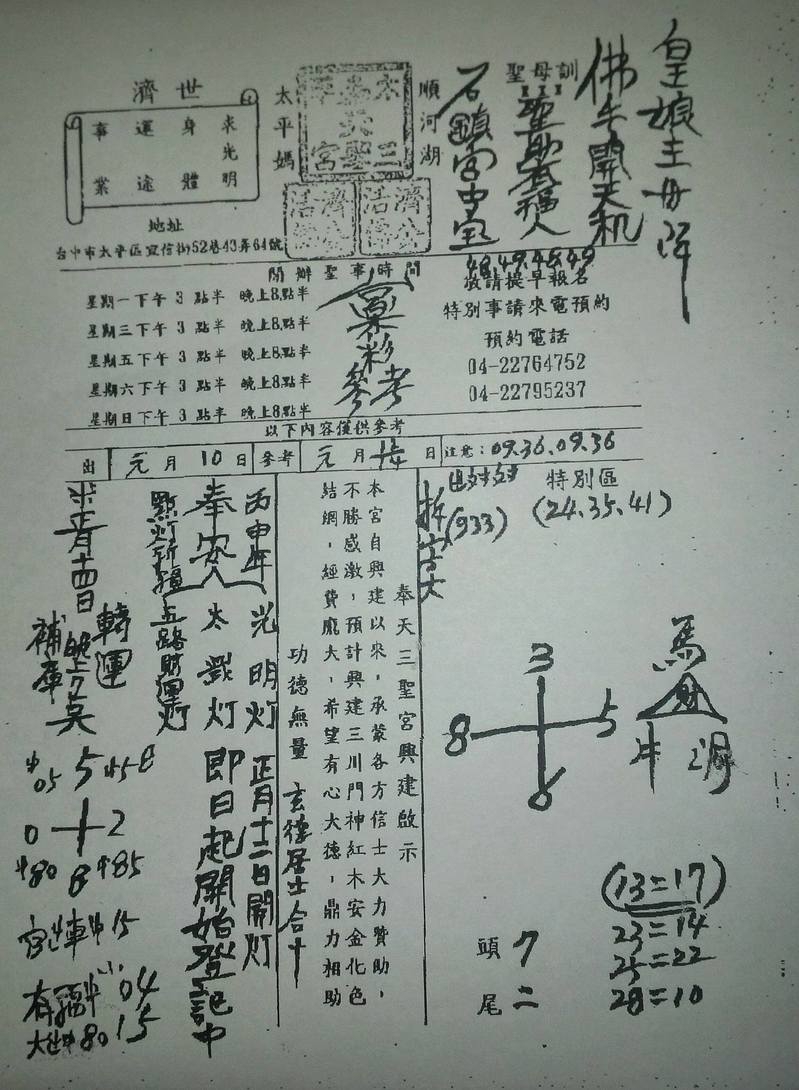 皇娘主母降
佛手開天机
聖母訓
石鎮宮中宝
順河湖
太平媽
濟世
求光明
身體
運途
事業
地址
台中市太平區宜信街52巷43弄64號
48.49.48.49
敬請提早報名
特別事請來電預約
預約電話
04-22764752
04-22795237
開辦聖事時間
星期一下午3點半 晚上8點半
星期三下午3點半 晚上8點半
星期五下午3點半 晚上8點半
星期六下午3點半 晚上8點半
星期日下午3點半 晚上8點半
參考
以下內容僅供參考
出 元月10日 參考 元月 日 注意:09.36.09.36
特別區
(24.35.41)
(933)
拆字大
馬
財
3
8 5
6
(13=17)
23=14
25=22
28=10
頭 7
尾 二
奉天三聖宮興建啟示
本宮自興建以來,承蒙各方信士大力贊助,
不勝感激,預計興建三川門神紅木安金化色
結網,經費龐大,希望有心大德,鼎力相助
功德無量 玄德居士合十
丙申年 光明灯 正月十二日開灯
奉安 太歲灯 即日起開始登記中
五路財運灯
轉運
補庫
05 5 45 8
0 2
80 8 85
15
04
80 15